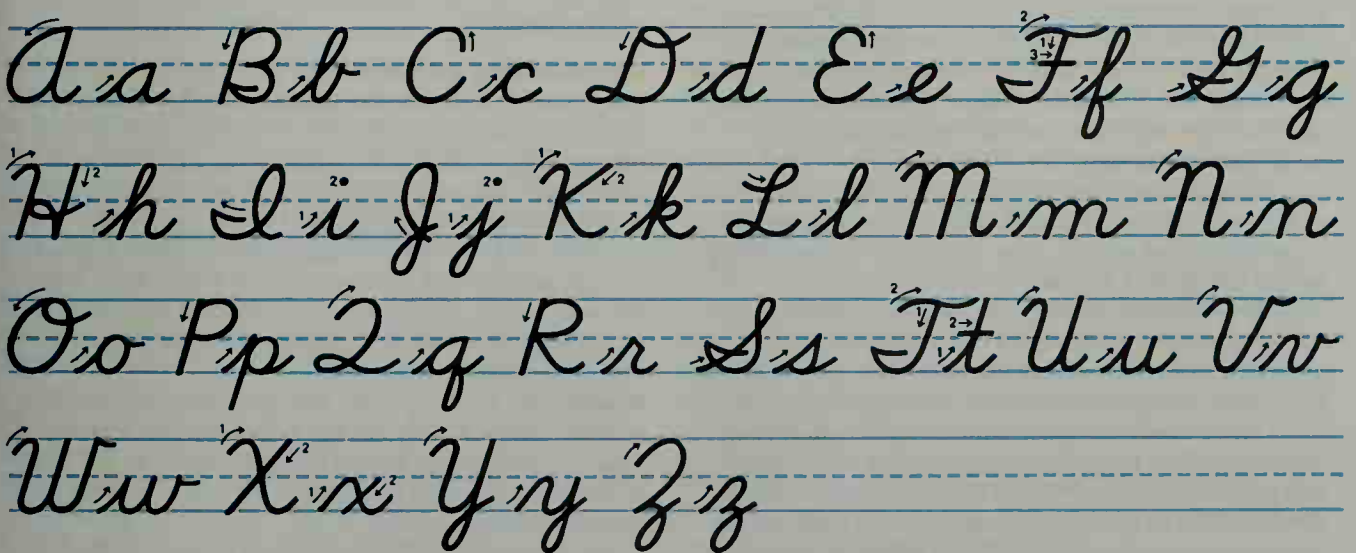 A a B b C c D d E e F f G g
H h I i J j K k L l M m N n
O o P p Q q R r S s T t U u V v
W w X x Y y Z z